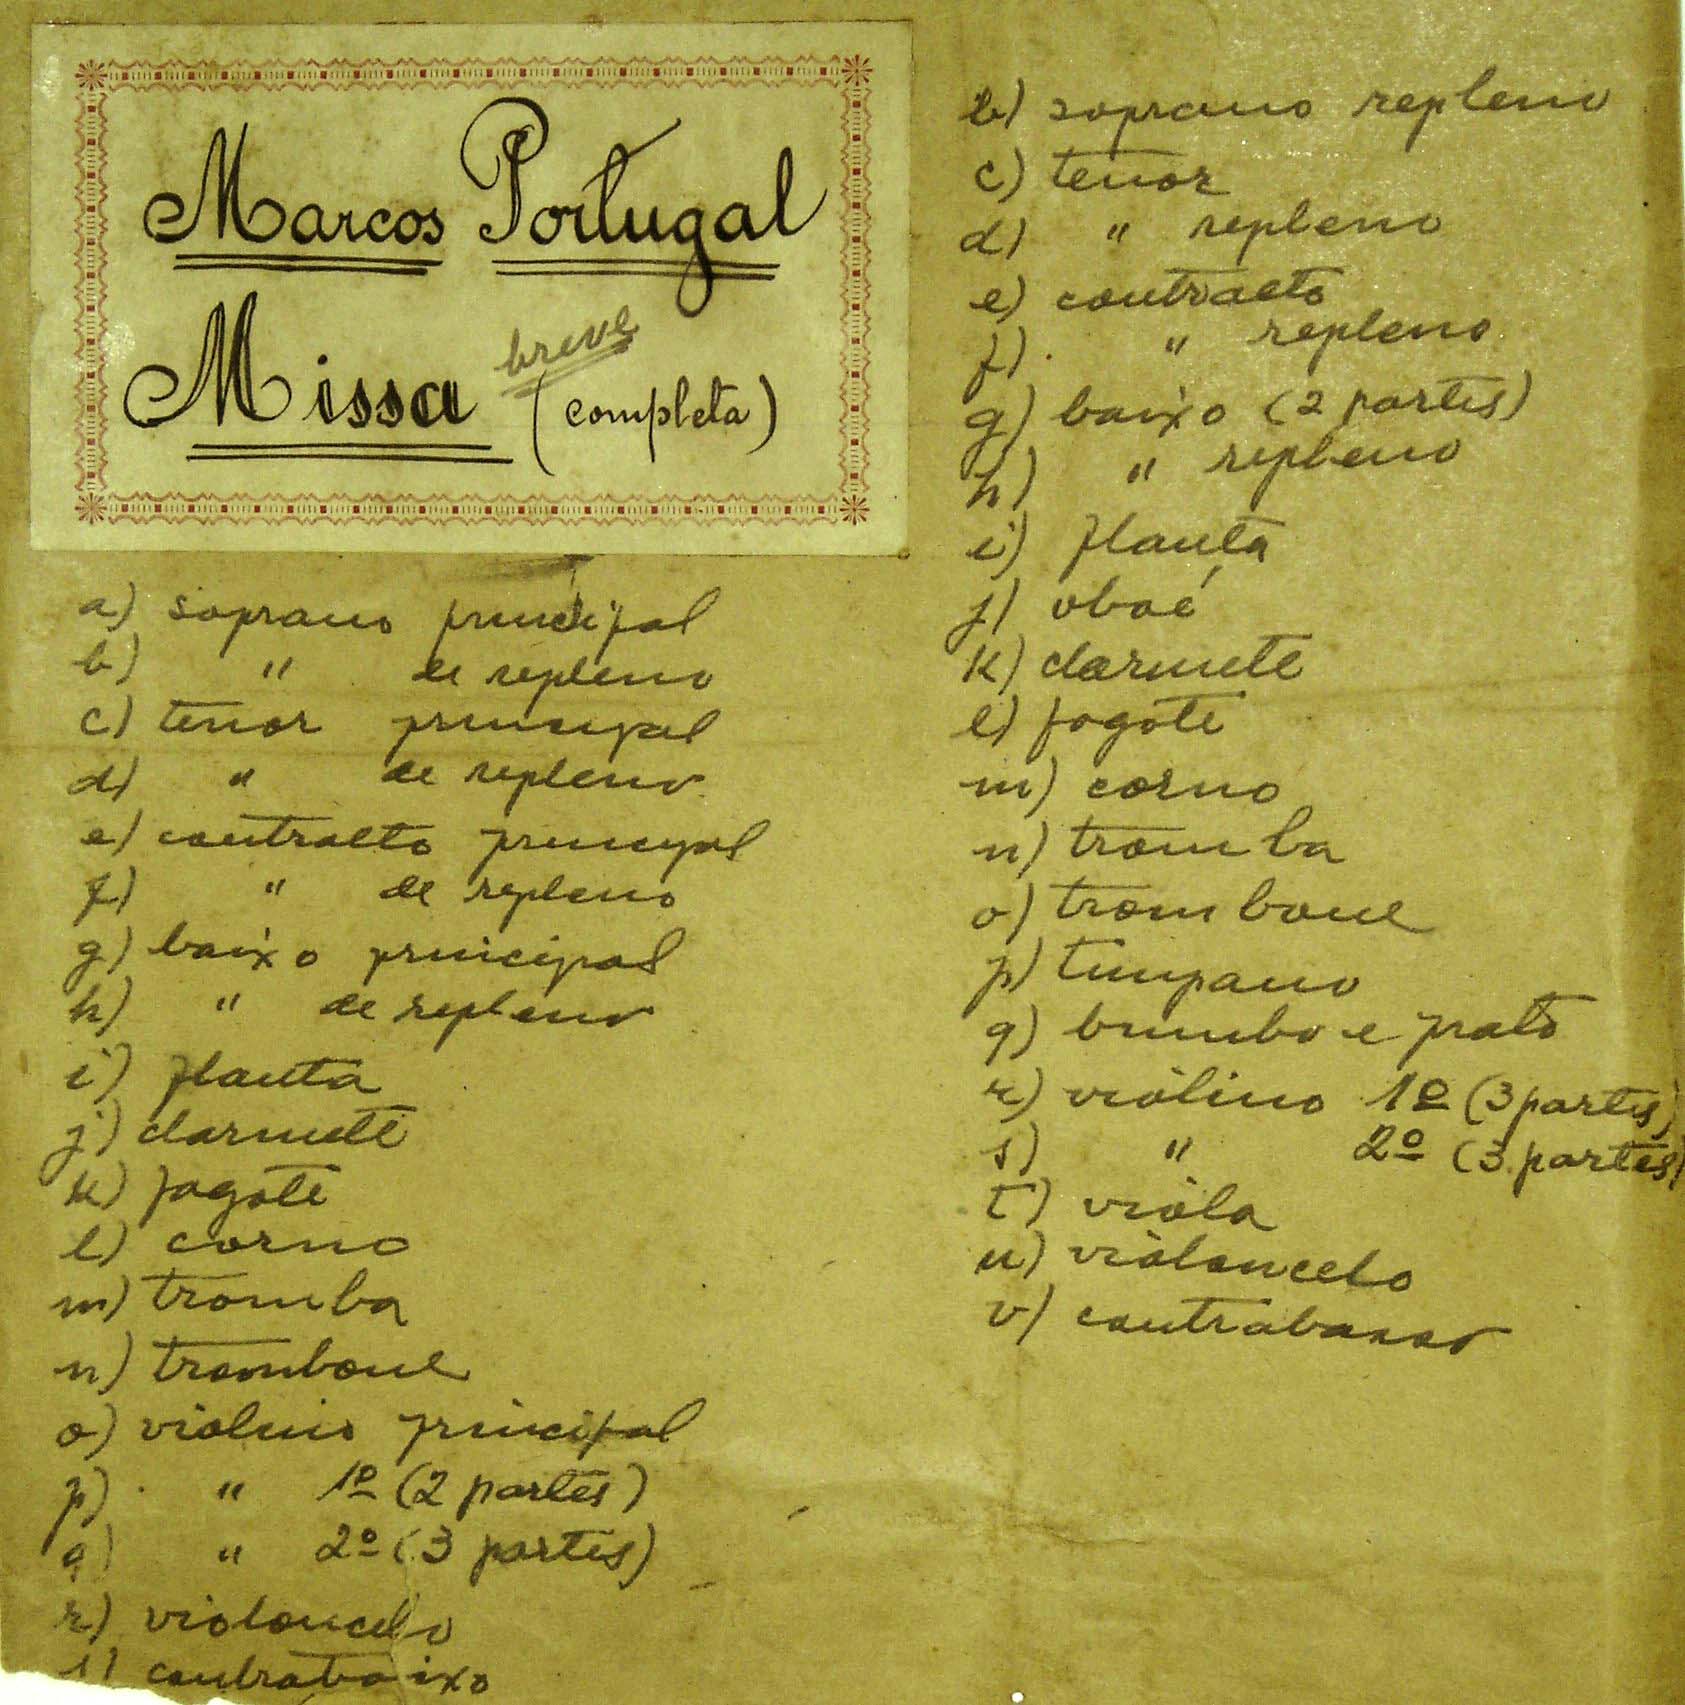 Marcos Portugal
Missa breve (completa)
a) soprano principal
b) " de repleno
c) tenor principal
d) " de repleno
e) contralto principal
f) " de repleno
g) baixo principal
h) " de repleno
i) flauta
j) clarinete
k) fagote
l) corno
m) tromba
n) trombone
o) violino principal
p) " 1º (2 partes)
q) " 2º (3 partes)
r) violoncelo
s) contrabaixo
b) soprano repleno
c) tenor
d) " repleno
e) contralto
f) " repleno
g) baixo (2 partes)
h) " repleno
i) flauta
j) oboé
k) clarinete
l) fagote
m) corno
n) tromba
o) trombone
p) timpano
q) bumbo e prato
r) violino 1º (3 partes)
s) " 2º (3 partes)
t) viola
u) violoncelo
v) contrabasso